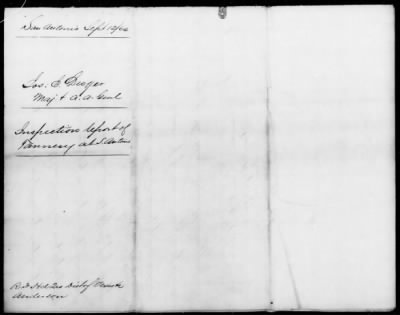 San Antonio Sept 12/64
Jos. E. Dwyer
Maj & A. A. Genl
Inspection report of
Tannery at S. Antonio
Anderson